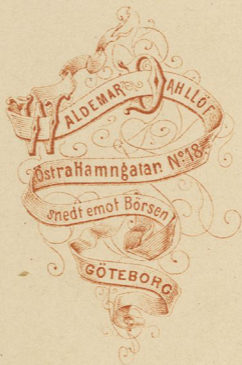 WALDEMAR DAHLLÖF
Östra Hamngatan No 18.
snedt emot Börsen
GÖTEBORG